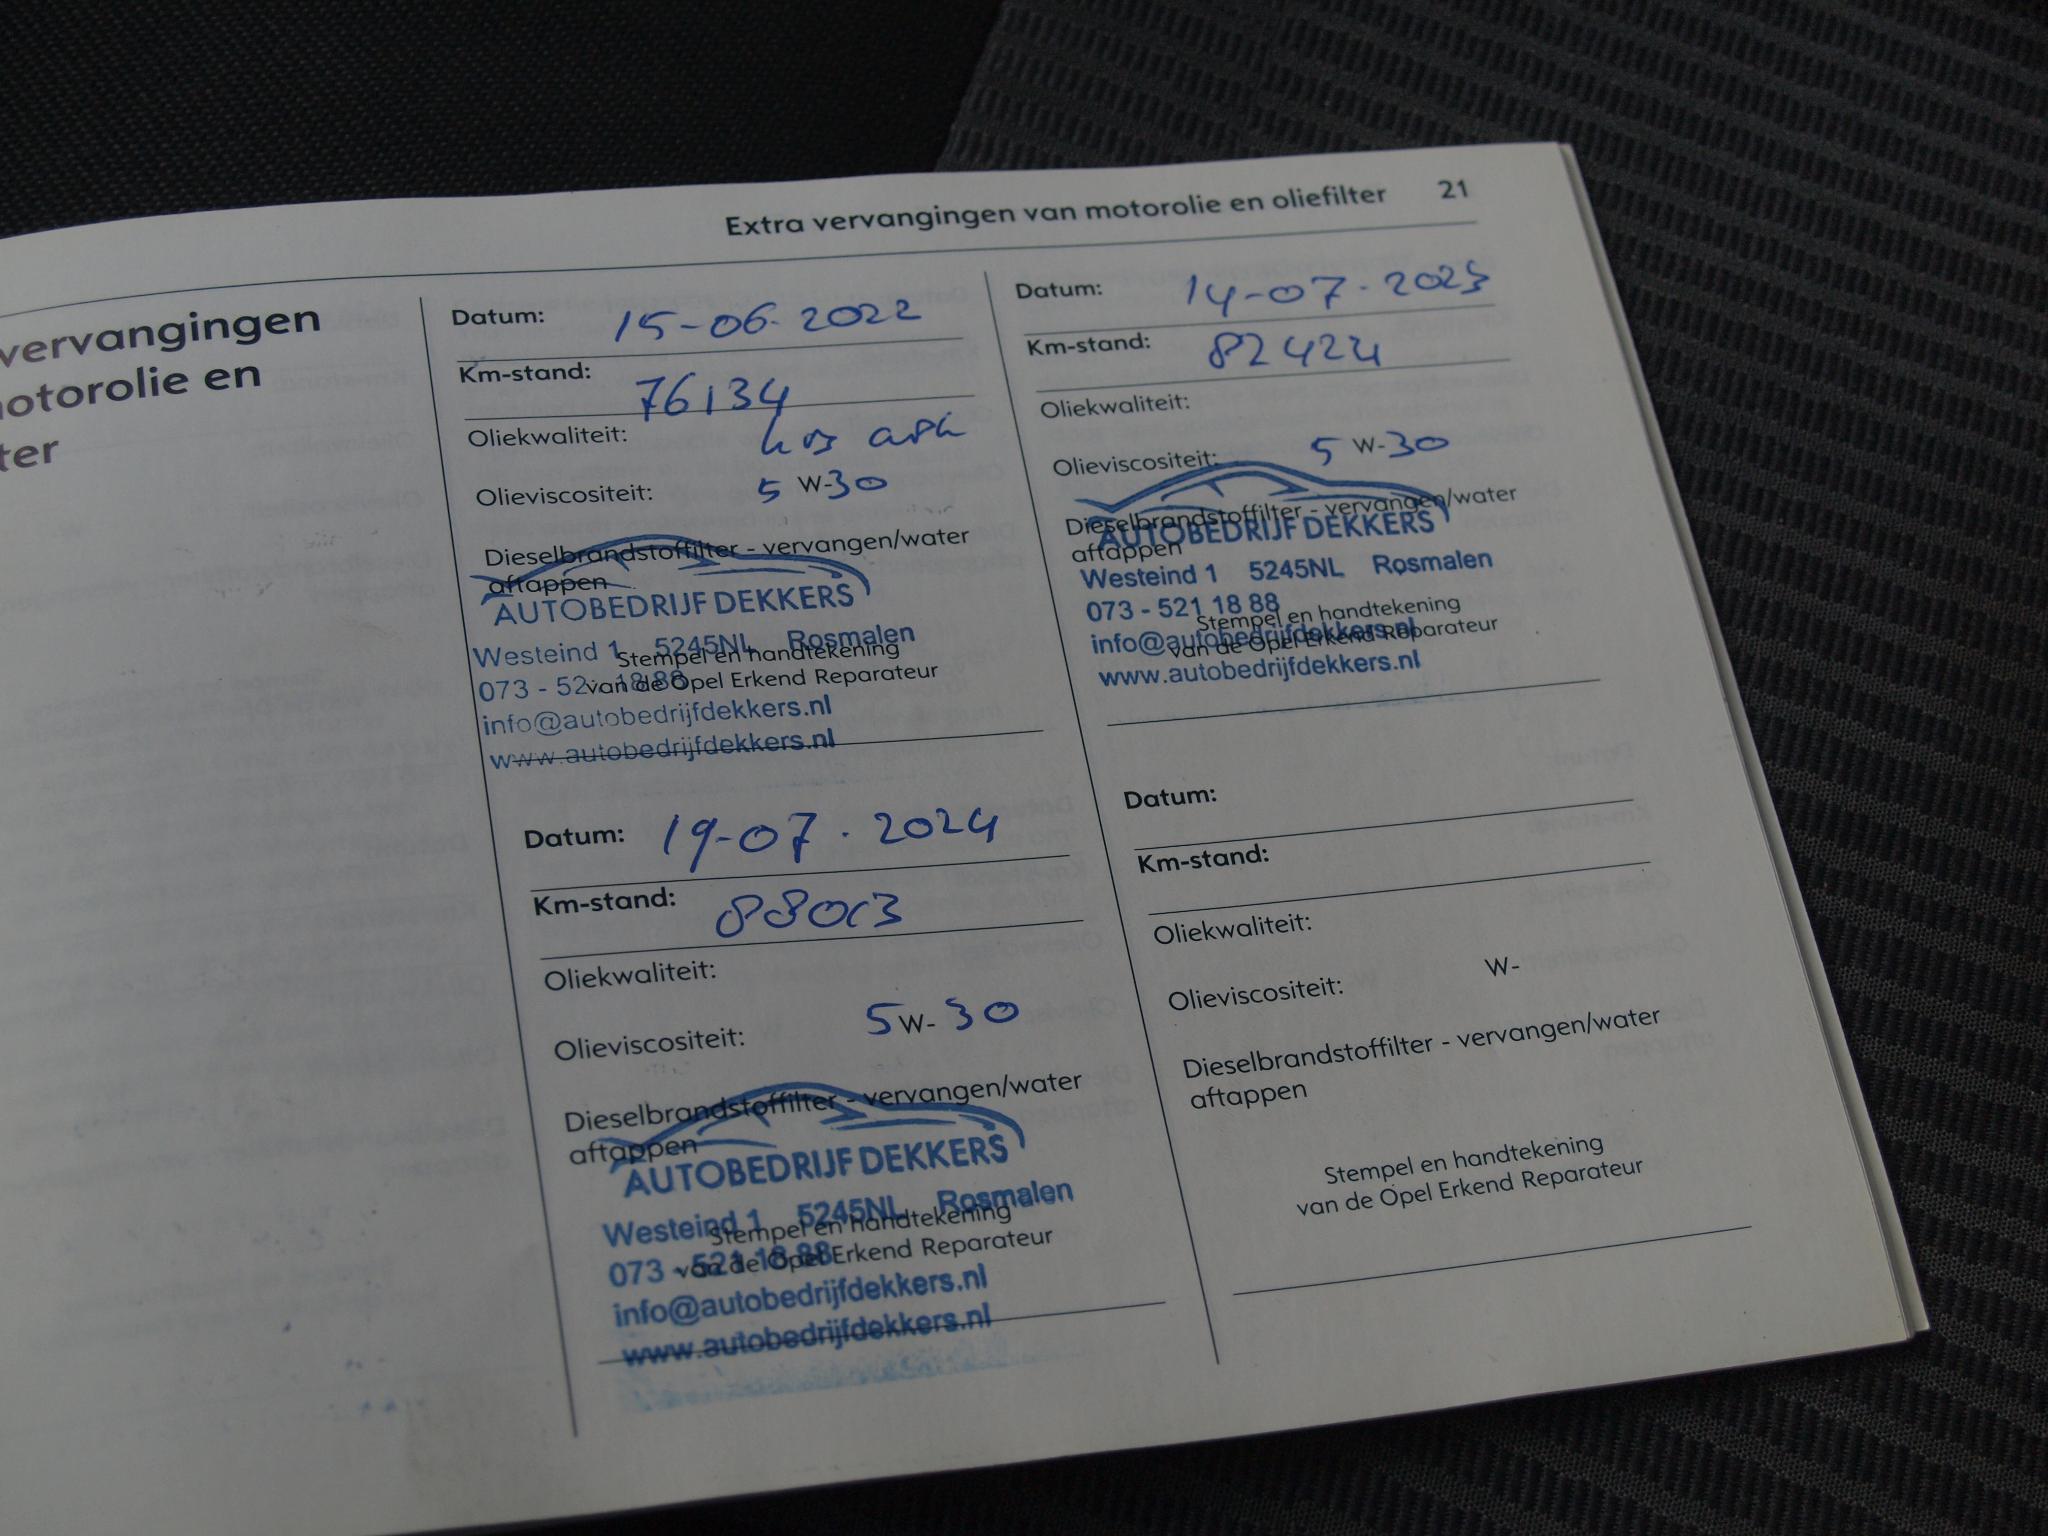 Extra vervangingen van motorolie en oliefilter 21
vervangingen
motorolie en
ter
Datum: 15-06-2022
Km-stand: 76134
Oliekwaliteit:
Olieviscositeit: 5 W-30
Dieselbrandstoffilter - vervangen/water
aftappen
AUTOBEDRIJF DEKKERS
Westeind 1 5245NL Rosmalen
Stempel en handtekening
073 - 52 18 88
van de Opel Erkend Reparateur
info@autobedrijfdekkers.nl
www.autobedrijfdekkers.nl
Datum: 19-07-2024
Km-stand: 88013
Oliekwaliteit:
Olieviscositeit: 5W-30
Dieselbrandstoffilter - vervangen/water
aftappen
AUTOBEDRIJF DEKKERS
Westeind 1 5245NL Rosmalen
Stempel en handtekening
073 - 521 18 88
van de Opel Erkend Reparateur
info@autobedrijfdekkers.nl
www.autobedrijfdekkers.nl
Datum: 14-07-2023
Km-stand: 82424
Oliekwaliteit:
Olieviscositeit: 5 W-30
Dieselbrandstoffilter - vervangen/water
AUTOBEDRIJF DEKKERS
aftappen
Westeind 1 5245NL Rosmalen
073 - 521 18 88
Stempel en handtekening
info@autobedrijfdekkers.nl
van de Opel Erkend Reparateur
www.autobedrijfdekkers.nl
Datum:
Km-stand:
Oliekwaliteit:
Olieviscositeit: W-
Dieselbrandstoffilter - vervangen/water
aftappen
Stempel en handtekening
van de Opel Erkend Reparateur